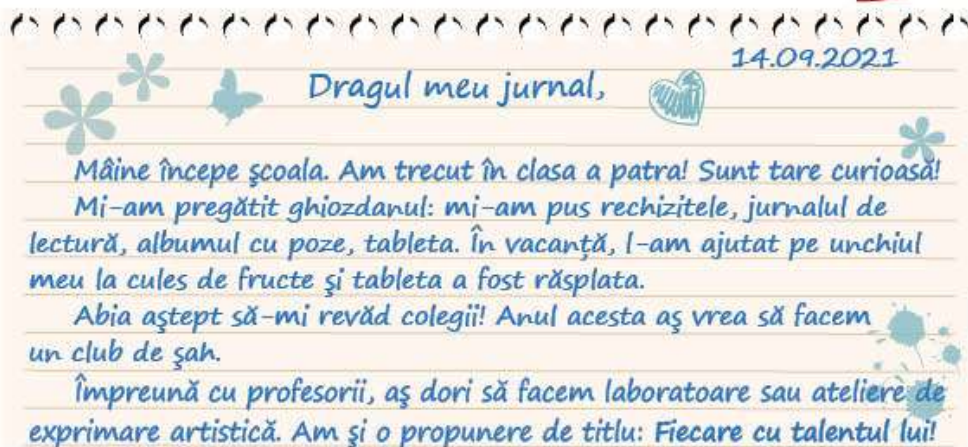 14.09.2021
Dragul meu jurnal,
Mâine începe şcoala. Am trecut în clasa a patra! Sunt tare curioasă!
Mi-am pregătit ghiozdanul: mi-am pus rechizitele, jurnalul de
lectură, albumul cu poze, tableta. În vacanţă, l-am ajutat pe unchiul
meu la cules de fructe şi tableta a fost răsplata.
Abia aştept să-mi revăd colegii! Anul acesta aş vrea să facem
un club de şah.
Împreună cu profesorii, aş dori să facem laboratoare sau ateliere de
exprimare artistică. Am şi o propunere de titlu: Fiecare cu talentul lui!